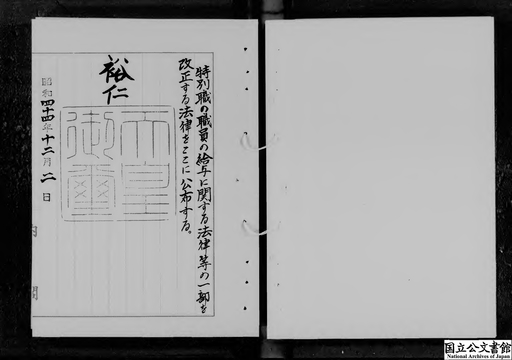 特別職の職員の給与に関する法律等の一部を
改正する法律をここに公布する。
裕仁
天皇
御璽
昭和四十四年十二月二日
国立公文書館
National Archives of Japan